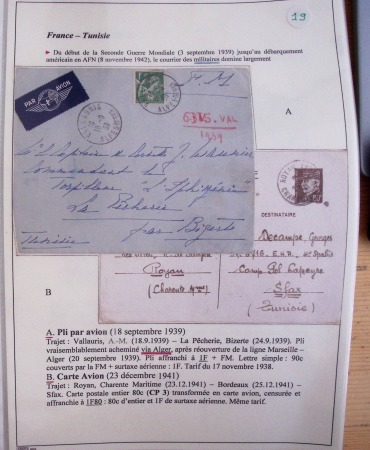 19
France – Tunisie
► Du début de la Seconde Guerre Mondiale (3 septembre 1939) jusqu'au débarquement
américain en AFN (8 novembre 1942), le courrier des militaires domine largement
A
PAR AVION
F. M
VAL
1939
Commandant le
Torpilleur "L'Iphigénie"
La Pêcherie
par Bizerte
Tunisie
ROYAN
DESTINATAIRE
Decamps Georges
Camp Sol Lapeyre
Sfax
(Tunisie)
Royan
(Charente Mme)
B
A. Pli par avion (18 septembre 1939)
Trajet : Vallauris, A.-M. (18.9.1939) – La Pêcherie, Bizerte (24.9.1939). Pli
vraisemblablement acheminé via Alger, après réouverture de la ligne Marseille –
Alger (20 septembre 1939). Pli affranchi à 1F + FM. Lettre simple : 90c
couverts par la FM + surtaxe aérienne : 1F. Tarif du 17 novembre 1938.
B. Carte Avion (23 décembre 1941)
Trajet : Royan, Charente Maritime (23.12.1941) – Bordeaux (25.12.1941) –
Sfax. Carte postale entier 80c (CP 3) transformée en carte avion, censurée et
affranchie à 1F80 : 80c d'entier et 1F de surtaxe aérienne. Même tarif.